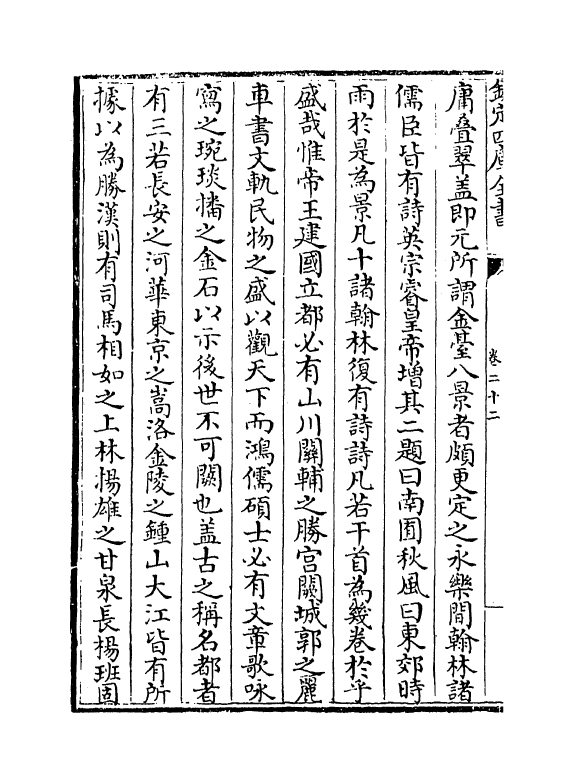 欽定四庫全書
卷二十二
庸疊翠盖即元所謂金臺八景者頗更定之永樂間翰林諸
儒臣皆有詩英宗睿皇帝增其二題曰南囿秋風曰東郊時
雨於是為景凡十諸翰林復有詩詩凡若干首為幾卷於乎
盛哉惟帝王建國立都必有山川關輔之勝宫闕城郭之麗
車書文軌民物之盛以觀天下而鴻儒碩士必有文章歌咏
寫之琬琰播之金石以示後世不可闕也盖古之稱名都者
有三若長安之河華東京之嵩洛金陵之鍾山大江皆有所
據以為勝漢則有司馬相如之上林揚雄之甘泉長楊班固